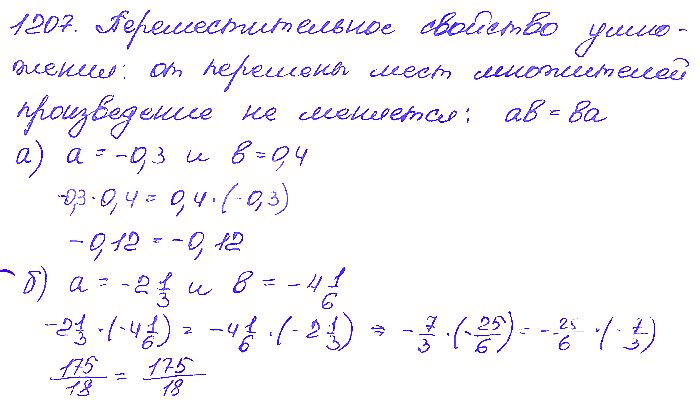 1207. Переместительное свойство умно-
жения: от перемены мест множителей
произведение не меняется: ab = ba
а) a = -0,3 и b = 0,4
-0,3 · 0,4 = 0,4 · (-0,3)
-0,12 = -0,12
б) a = -2 1/3 и b = -4 1/6
-2 1/3 · (-4 1/6) = -4 1/6 · (-2 1/3) ⇒ -7/3 · (-25/6) = -25/6 · (-7/3)
175/18 = 175/18